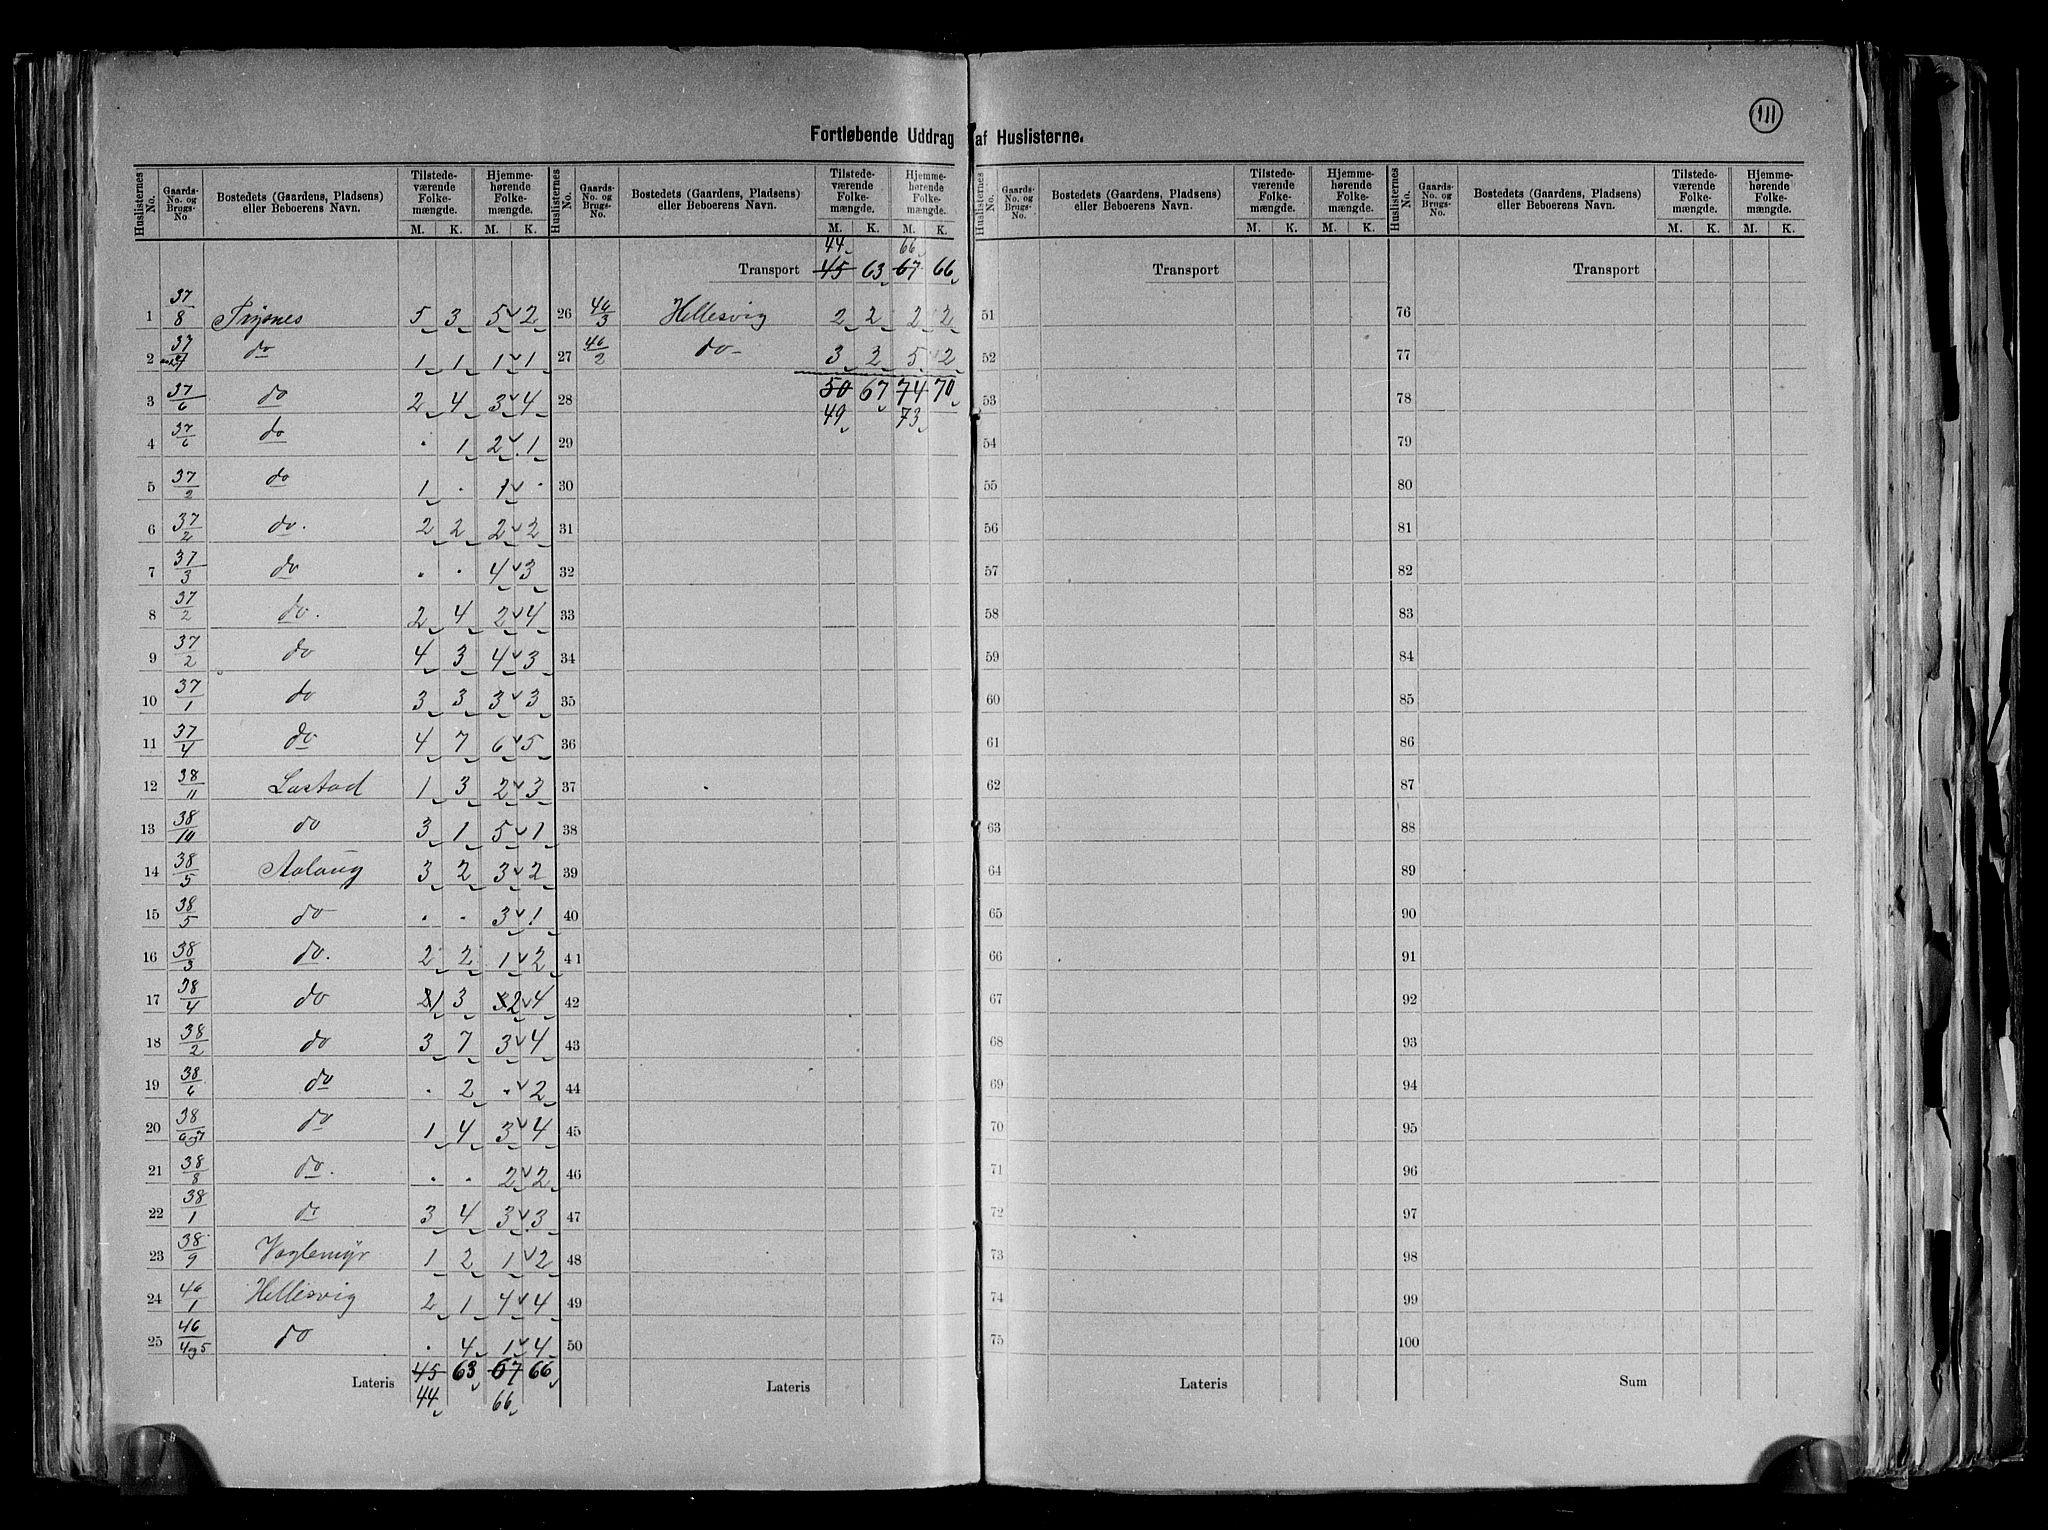 111
Fortløbende Uddrag af Huslisterne.
Huslisternes No. | Gaards-No. og Brugs-No. | Bostedets (Gaardens, Pladsens) eller Beboerens Navn. | Tilstedeværende Folkemængde. M. K. | Hjemmehørende Folkemængde. M. K.
1 37/8 Trysnes 5 3 5 2
2 37/ do 1 1 1 1
3 37/6 do 2 4 3 4
4 37/6 do . 1 2 1
5 37/2 do 1 . 1 .
6 37/2 do. 2 2 2 2
7 37/3 do . . 4 3
8 37/2 do. 2 4 2 4
9 37/2 do 4 3 4 3
10 37/1 do 3 3 3 3
11 37/4 do 4 7 6 5
12 38/11 Lastad 1 3 2 3
13 38/10 do 3 1 5 1
14 38/5 Aalaug 3 2 3 2
15 38/5 do . . 3 1
16 38/3 do. 2 2 1 2
17 38/4 do 2 1 3 3 2 4
18 38/2 do 3 7 3 4
19 38/6 do . 2 . 2
20 38/6og7 do 1 4 3 4
21 38/8 do. . . 2 2
22 38/1 do 3 4 3 3
23 38/9 Voglemyr 1 2 1 2
24 40/1 Hellesvig 2 1 4 4
25 40/4og5 do . 4 1 4
Lateris 45 63 67 66
44 66
Huslisternes No. | Gaards-No. og Brugs-No. | Bostedets (Gaardens, Pladsens) eller Beboerens Navn. | Tilstedeværende Folkemængde. M. K. | Hjemmehørende Folkemængde. M. K.
44 66
Transport 45 63 67 66
26 40/3 Hellesvig 2 2 2 2
27 40/2 do 3 2 5 2
28 50 67 74 70
49 73
29
30
31
32
33
34
35
36
37
38
39
40
41
42
43
44
45
46
47
48
49
50
Lateris
Huslisternes No. | Gaards-No. og Brugs-No. | Bostedets (Gaardens, Pladsens) eller Beboerens Navn. | Tilstedeværende Folkemængde. M. K. | Hjemmehørende Folkemængde. M. K.
Transport
51
52
53
54
55
56
57
58
59
60
61
62
63
64
65
66
67
68
69
70
71
72
73
74
75
Lateris
Huslisternes No. | Gaards-No. og Brugs-No. | Bostedets (Gaardens, Pladsens) eller Beboerens Navn. | Tilstedeværende Folkemængde. M. K. | Hjemmehørende Folkemængde. M. K.
Transport
76
77
78
79
80
81
82
83
84
85
86
87
88
89
90
91
92
93
94
95
96
97
98
99
100
Sum